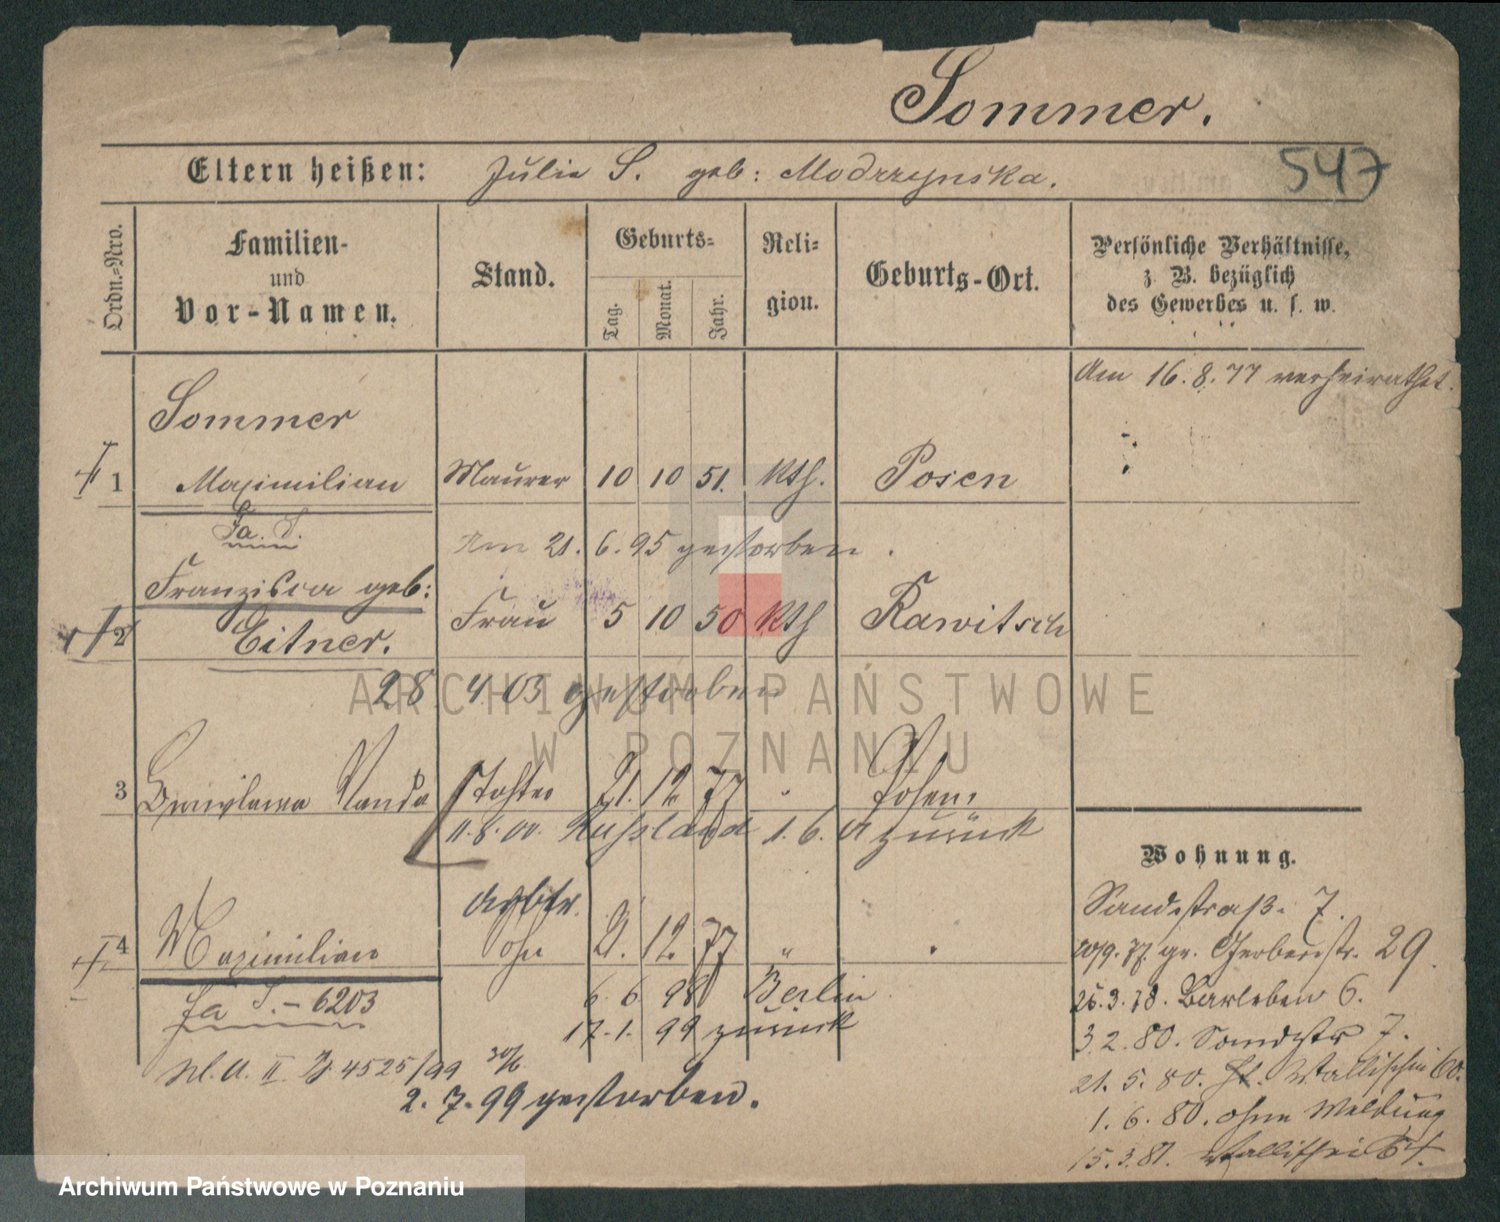 Sommer.
547
Eltern heißen: Julie S. geb: Modrzynska.
Ordn.=Nro.
Familien- und Vor-Namen.
Stand.
Geburts=
Tag. Monat. Jahr.
Reli= gion.
Geburts-Ort.
Persönliche Verhältnisse, z. B. bezüglich des Gewerbes u. s. w.
Am 16.8.77 verheirathet.
Sommer
1 Maximilian Maurer 10 10 51. kth. Posen
Fa. S.
Am 21. 6. 95 gestorben.
Franzisca geb:
2 Eitner. Frau 5 10 50 kth Rawitsch
28 4 03 gestorben
3 Wanda Tochter 21. 12. 77 " Posen.
11.8.00. Russland 1. 6. zurück
4 Maximilian 21. 12. 77 "
Fa S. - 6203
6 6 98 Berlin
17. 1. 99 zurück
II. 4525/99 30/6
2. 7. 99 gestorben.
Wohnung.
Sandstraß. 7.
20/9. 77. gr. Gerberstr. 29.
26.3.78. Barleben 6.
3.2.80. Sandstr 7.
21. 5. 80. Wallischei 60.
1. 6. 80. ohne Meldung
15.3.81. Wallischei
ARCHIWUM PAŃSTWOWE
W POZNANIU
Archiwum Państwowe w Poznaniu